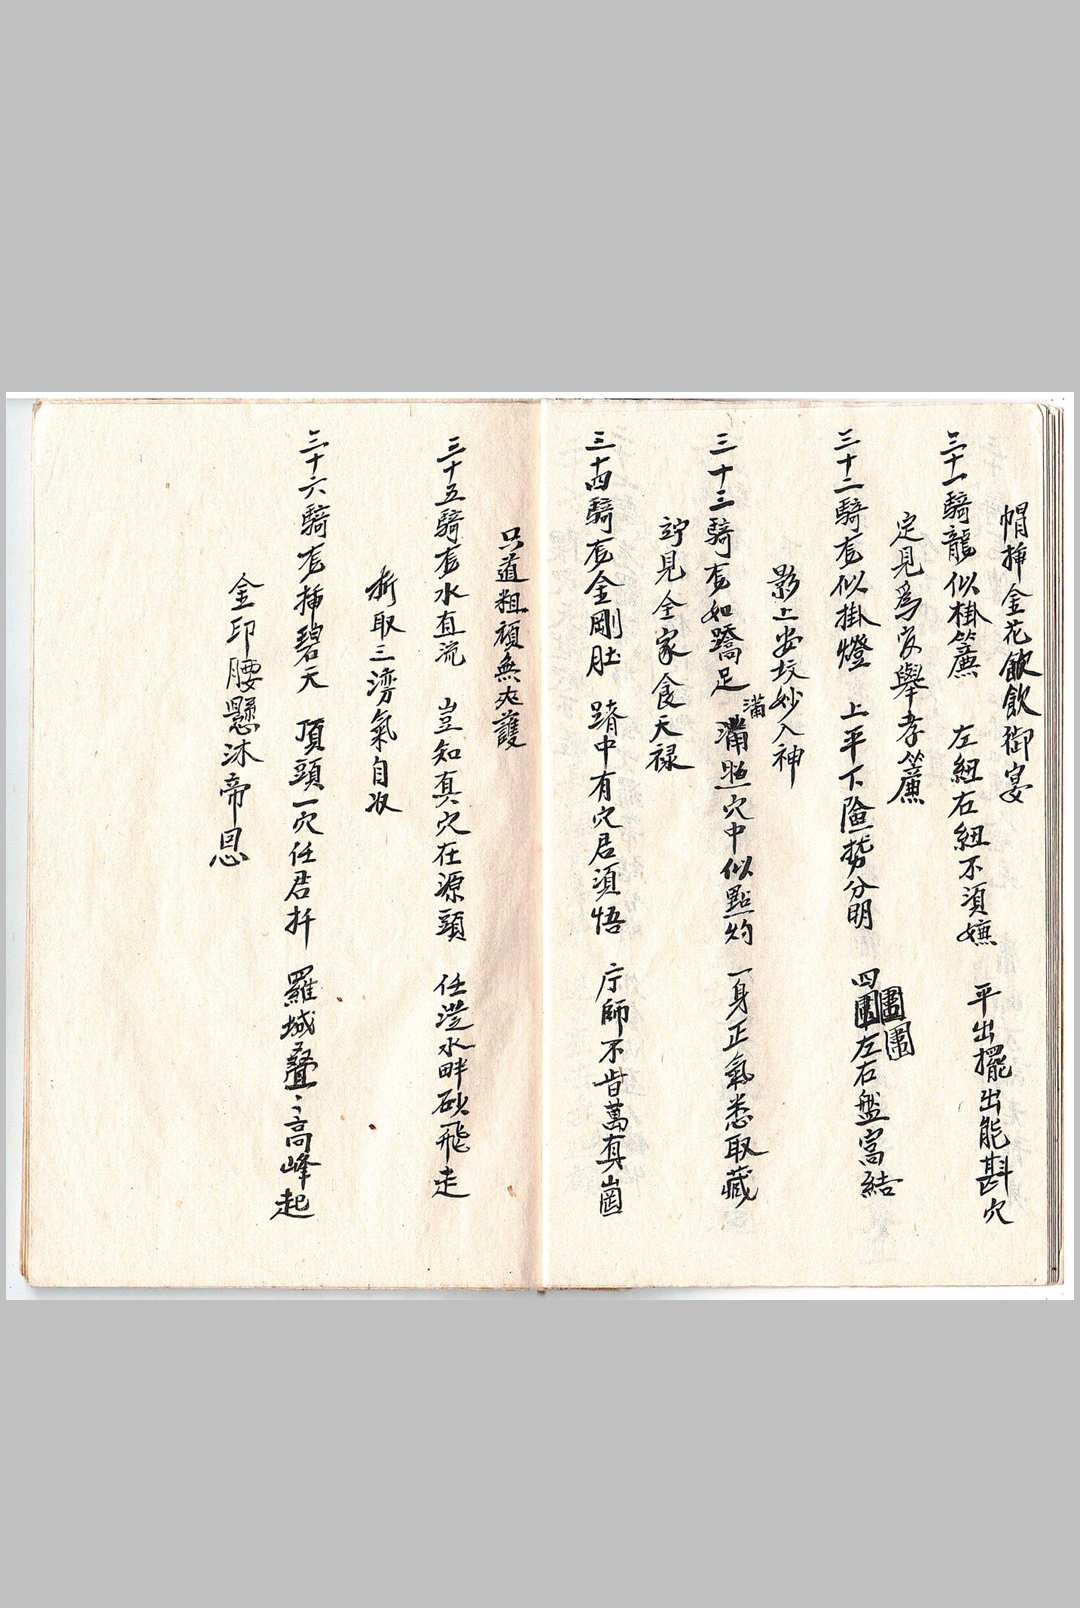 帽挿金花飲飲御宴
三十一騎龍似掛簾 左紐右紐不須嫌 平出擺出能斟穴
定見為官舉孝簾
三十二騎龙似掛燈 上平下險勢分明 四圍左右盤窩結
影上安坟妙入神
三十三騎龙如蹻足 滿堂穴中似點灼 一身正氣悉取藏
竚見全家食天禄
三十四騎龙金剛肚 踏中有穴君須悟 庁師不肯葛真崗
只道粗頑無夾護
三十五騎龙水直流 豈知真穴在源頭 任从水畔砂飛走
折取三灣氣自收
三十六騎龙挿碧天 頂頭一穴任君扦 羅城疊々高峰起
金印腰懸沐帝恩